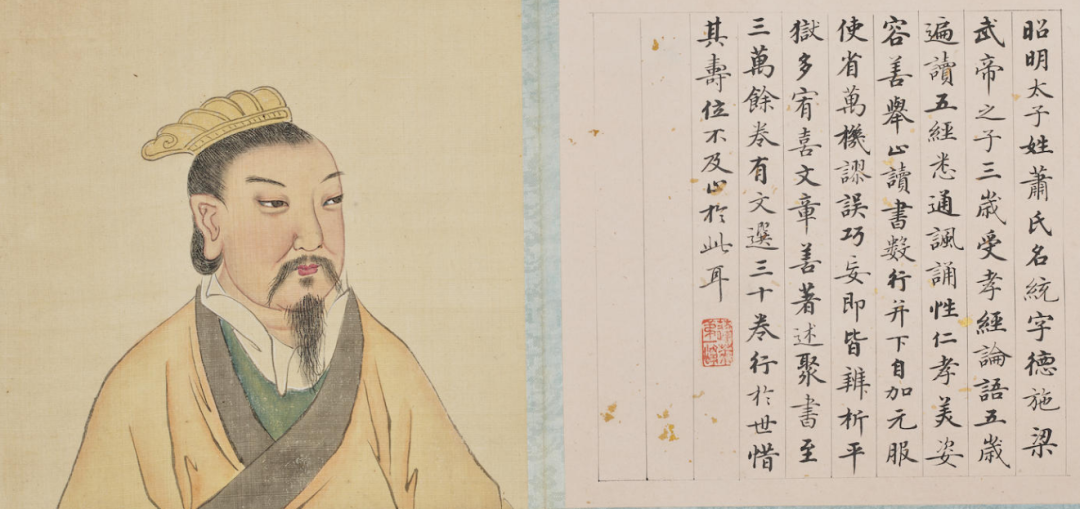 昭明太子姓蕭氏名統字德施梁
武帝之子三歲受孝經論語五歲
遍讀五經悉通諷誦性仁孝美姿
容善舉止讀書數行并下自加元服
使省萬機謬誤巧妄即皆辨析平
獄多宥喜文章善著述聚書至
三萬餘卷有文選三十卷行於世惜
其壽位不及止於此耳